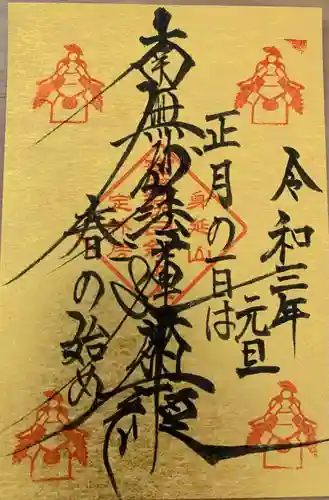 令和三年
元旦
正月の一日は
南無妙法蓮華經
春の始め
身延山